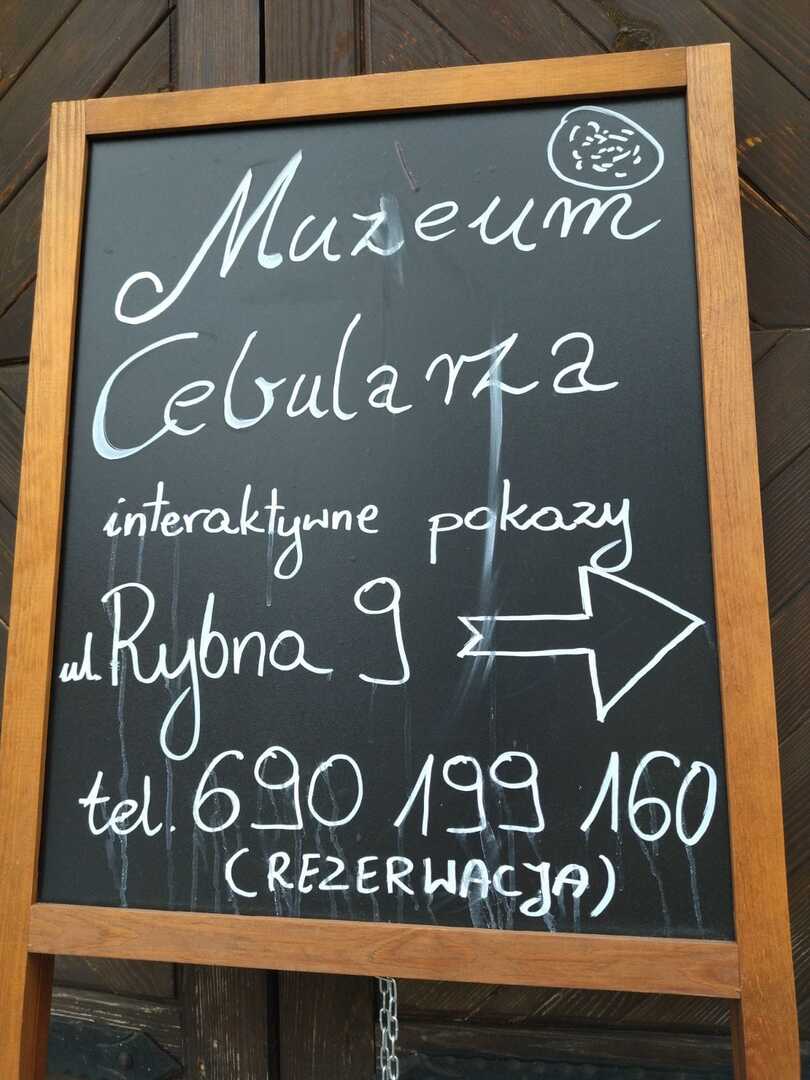 Muzeum
Cebularza
interaktywne pokazy
ul. Rybna 9
tel. 690 199 160
(REZERWACJA)